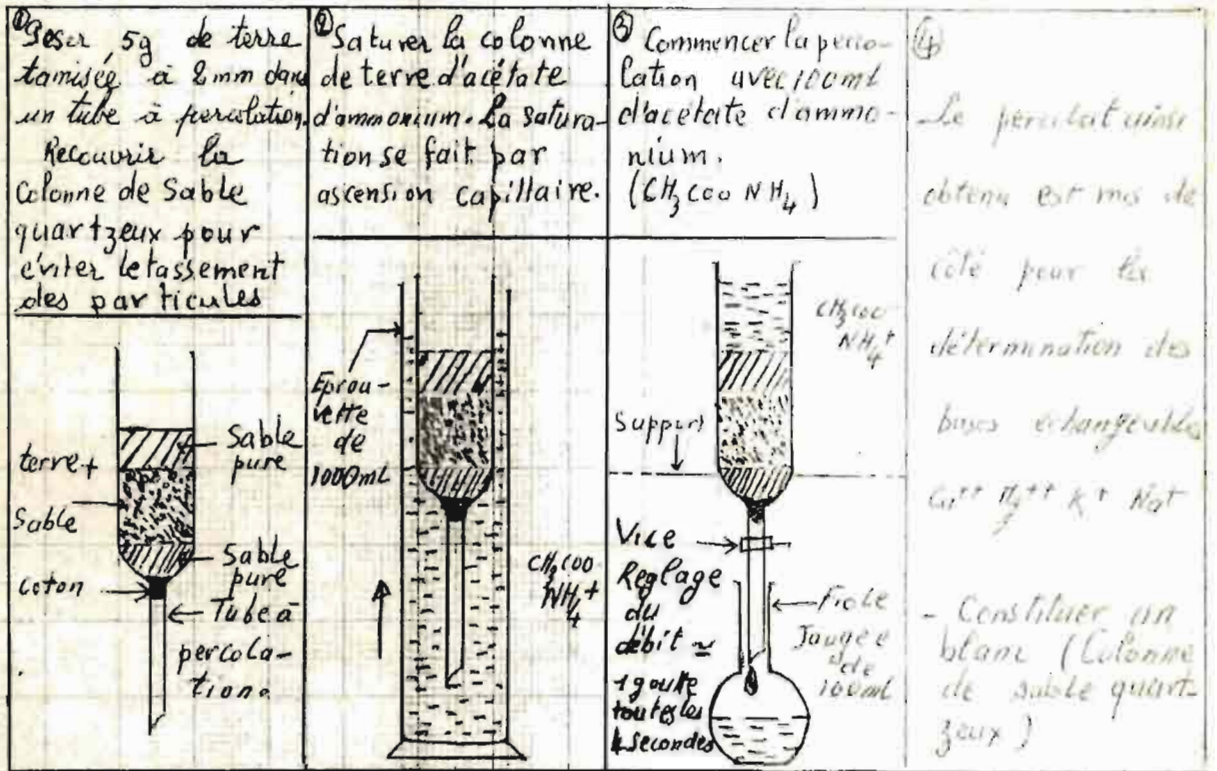 ① Peser 5g de terre
tamisée à 2mm dans
un tube à percolation.
Recouvrir la
Colonne de Sable
quartzeux pour
éviter le tassement
des particules
terre +
Sable
coton
Sable
pure
Sable
pure
Tube à
percola-
tion.
② Saturer la colonne
de terre d'acétate
d'ammonium. La satura-
tion se fait par
ascension capillaire.
Eprou-
vette
de
1000mL
CH3COO
NH4+
③ Commencer la perco-
lation avec 100ml
d'acétate d'ammo-
nium.
(CH3COO NH4)
CH3COO
NH4+
Support
Vice
Réglage
du
débit ≃
1 goutte
toutes les
4 secondes
Fiole
Jaugée
de
100ml
④
- Le percolat ainsi
obtenu est mis de
côté pour la
détermination des
bases échangeables
Ca++ Mg++ K+ Na+
- Constituer un
blanc (Colonne
de sable quart-
zeux)